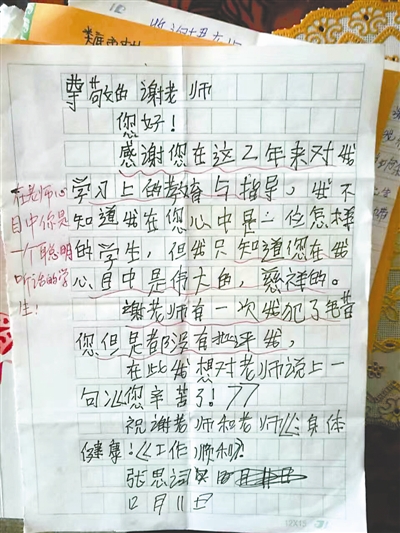 尊敬的谢老师
您好！
感谢您在这2年来对我
学习上的教育与指导，我不
知道我在您心中是一位怎样
的学生，但我只知道您在我
心目中是伟大的，慈祥的。
谢老师有一次我犯了错
您但是都没有批评我，
在此我想对老师说上一
句 您辛苦了！
祝谢老师和老师 身体
健康！工作顺利！
张思词
12月11日
在老师心
目中你是
一个聪明
听话的学
生！